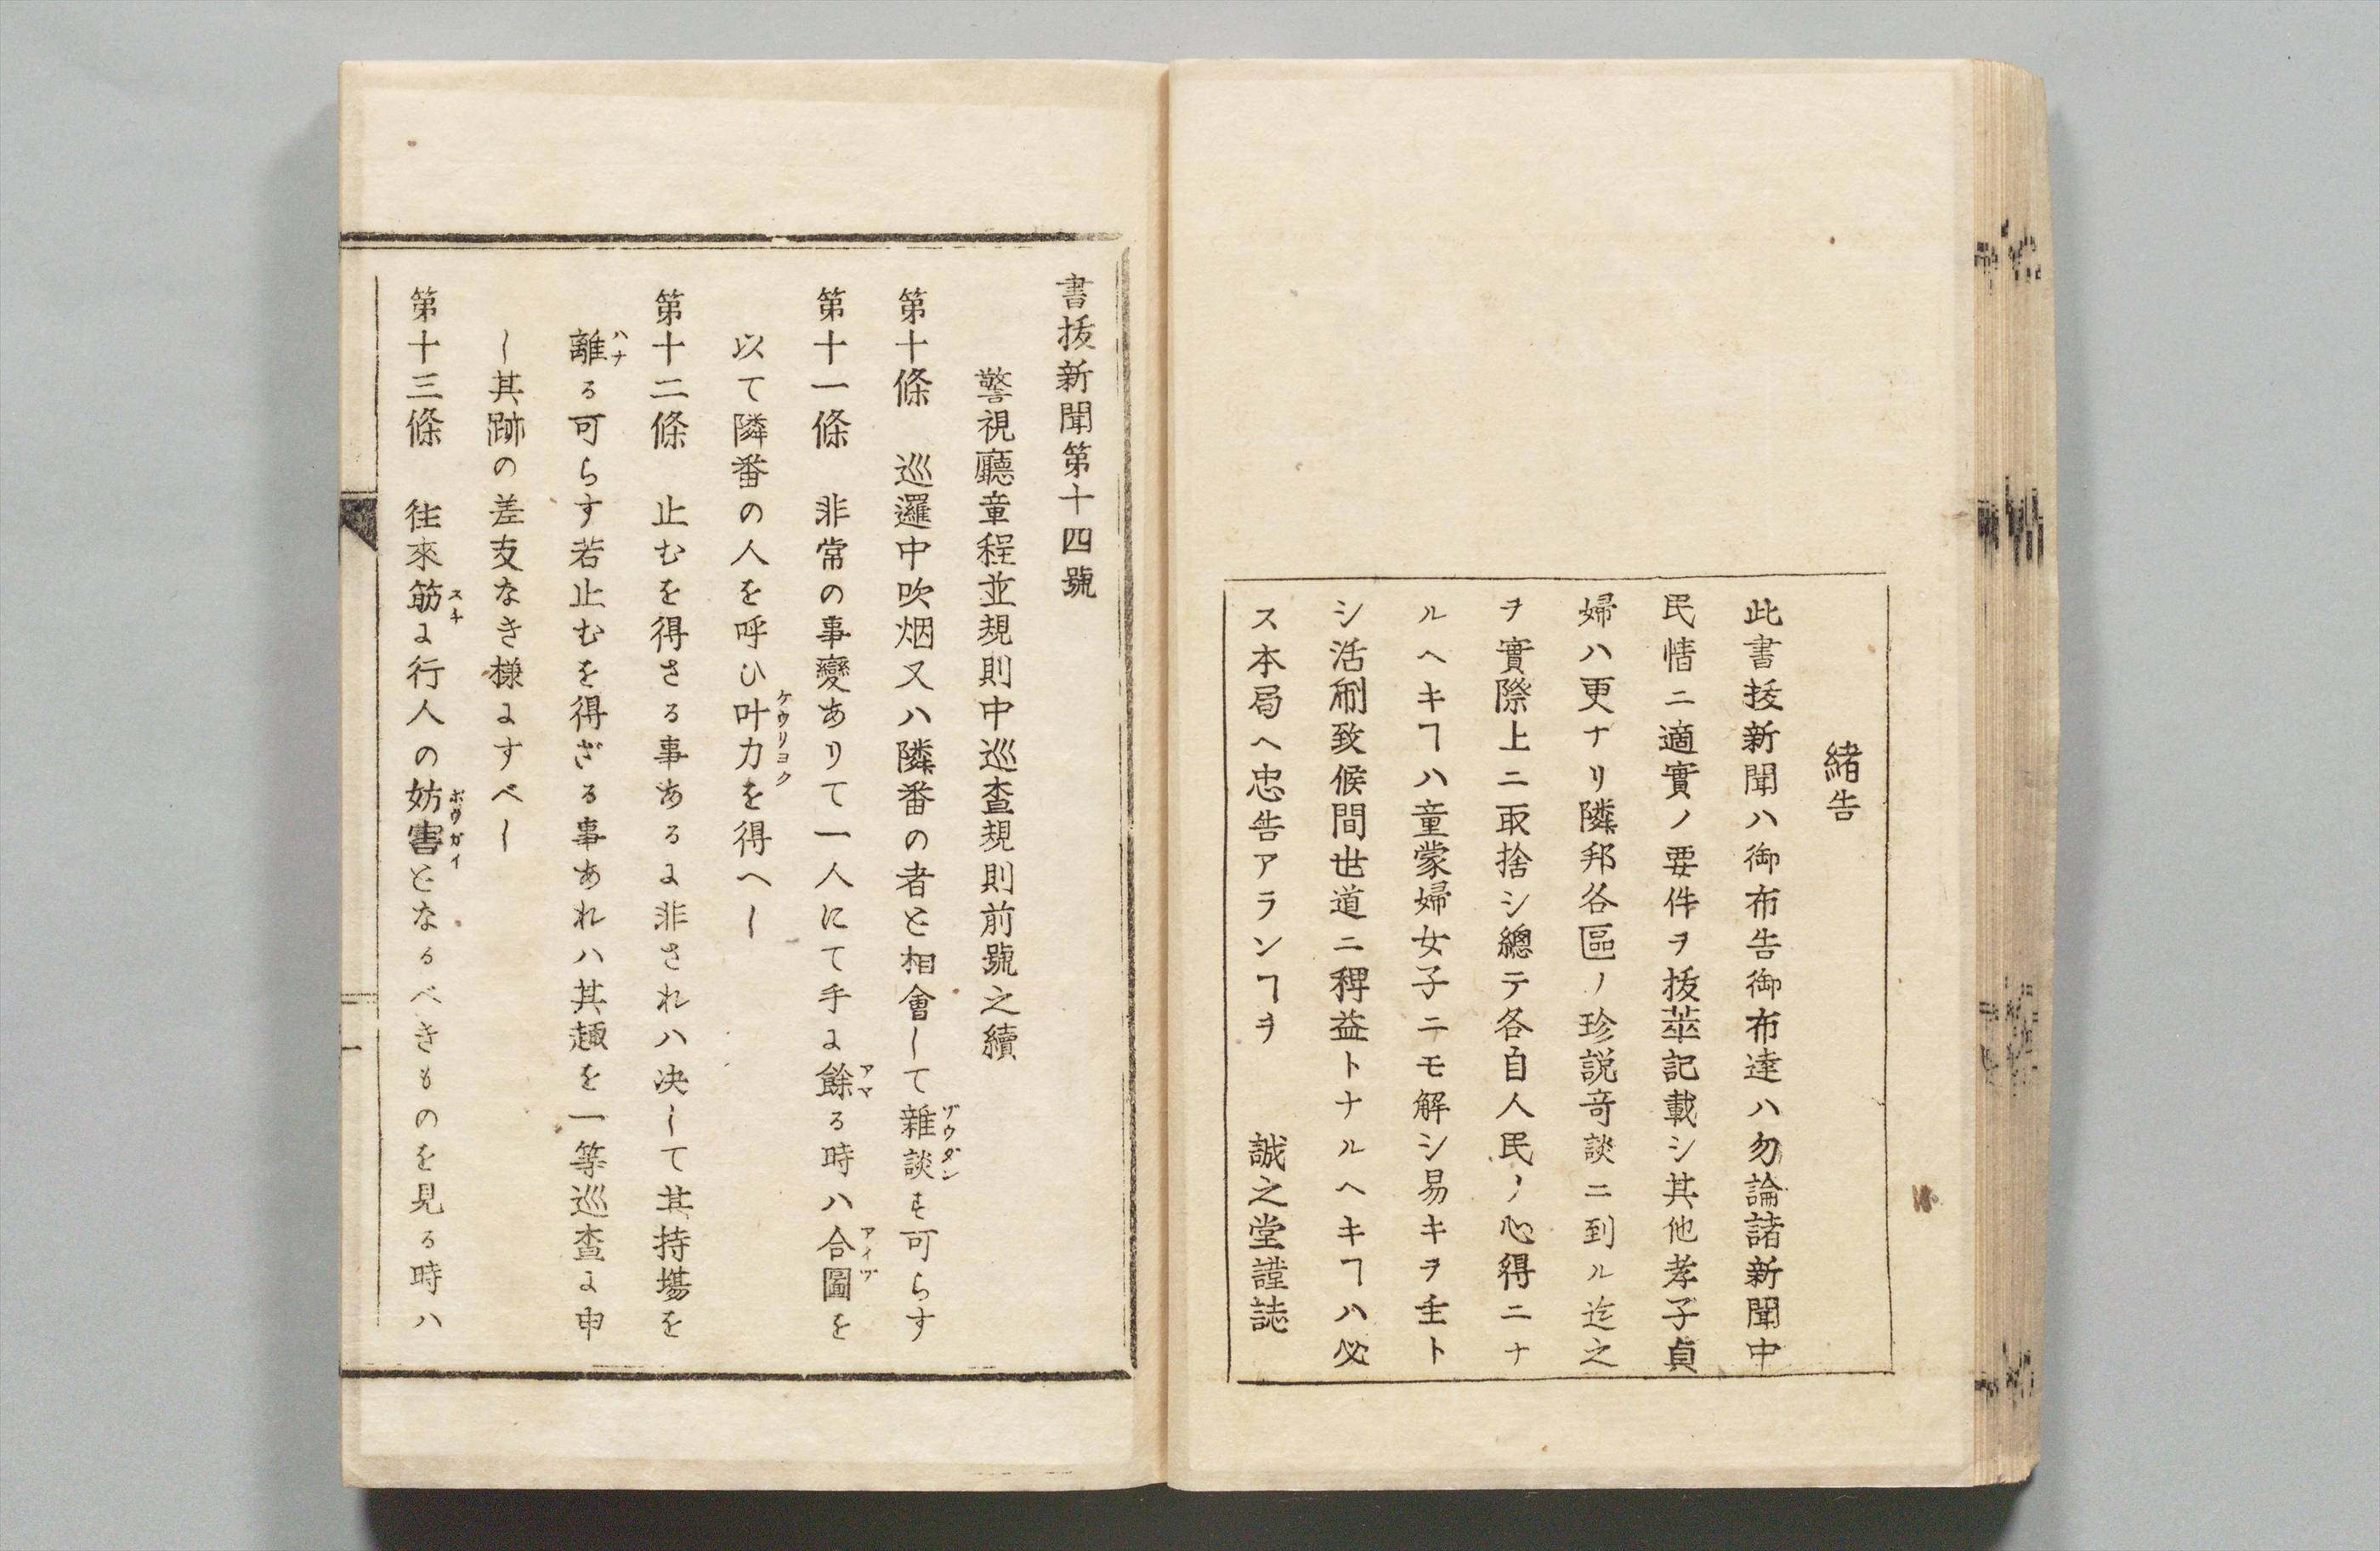 緒告
此書抜新聞ハ御布告御布達ハ勿論諸新聞中
民情ニ適實ノ要件ヲ抜萃記載シ其他孝子貞
婦ハ更ナリ隣邦各區ノ珍説奇談ニ到ル迄之
ヲ實際上ニ取捨シ總テ各自人民ノ心得ニナ
ルヘキヿハ童蒙婦女子ニモ解シ易キヲ主ト
シ活刷致候間世道ニ稗益トナルヘキヿハ必
ス本局ヘ忠告アランヿヲ　誠之堂謹誌
書抜新聞第十四號
警視廳章程並規則中巡査規則前號之續
第十條　巡邏中吹烟又ハ隣番の者と相會して雜談す可らす
ゾウダン
第十一條　非常の事變ありて一人にて手に餘る時ハ合圖を
アマ
アイヅ
以て隣番の人を呼ひ叶力を得へし
ケウリヨク
第十二條　止むを得さる事あるに非されハ决して其持場を
離る可らす若止むを得ざる事あれハ其趣を一等巡査に申
ハナ
し其跡の差支なき様にすべし
第十三條　往來筋に行人の妨害となるべきものを見る時ハ
スヂ
ボウガイ
一